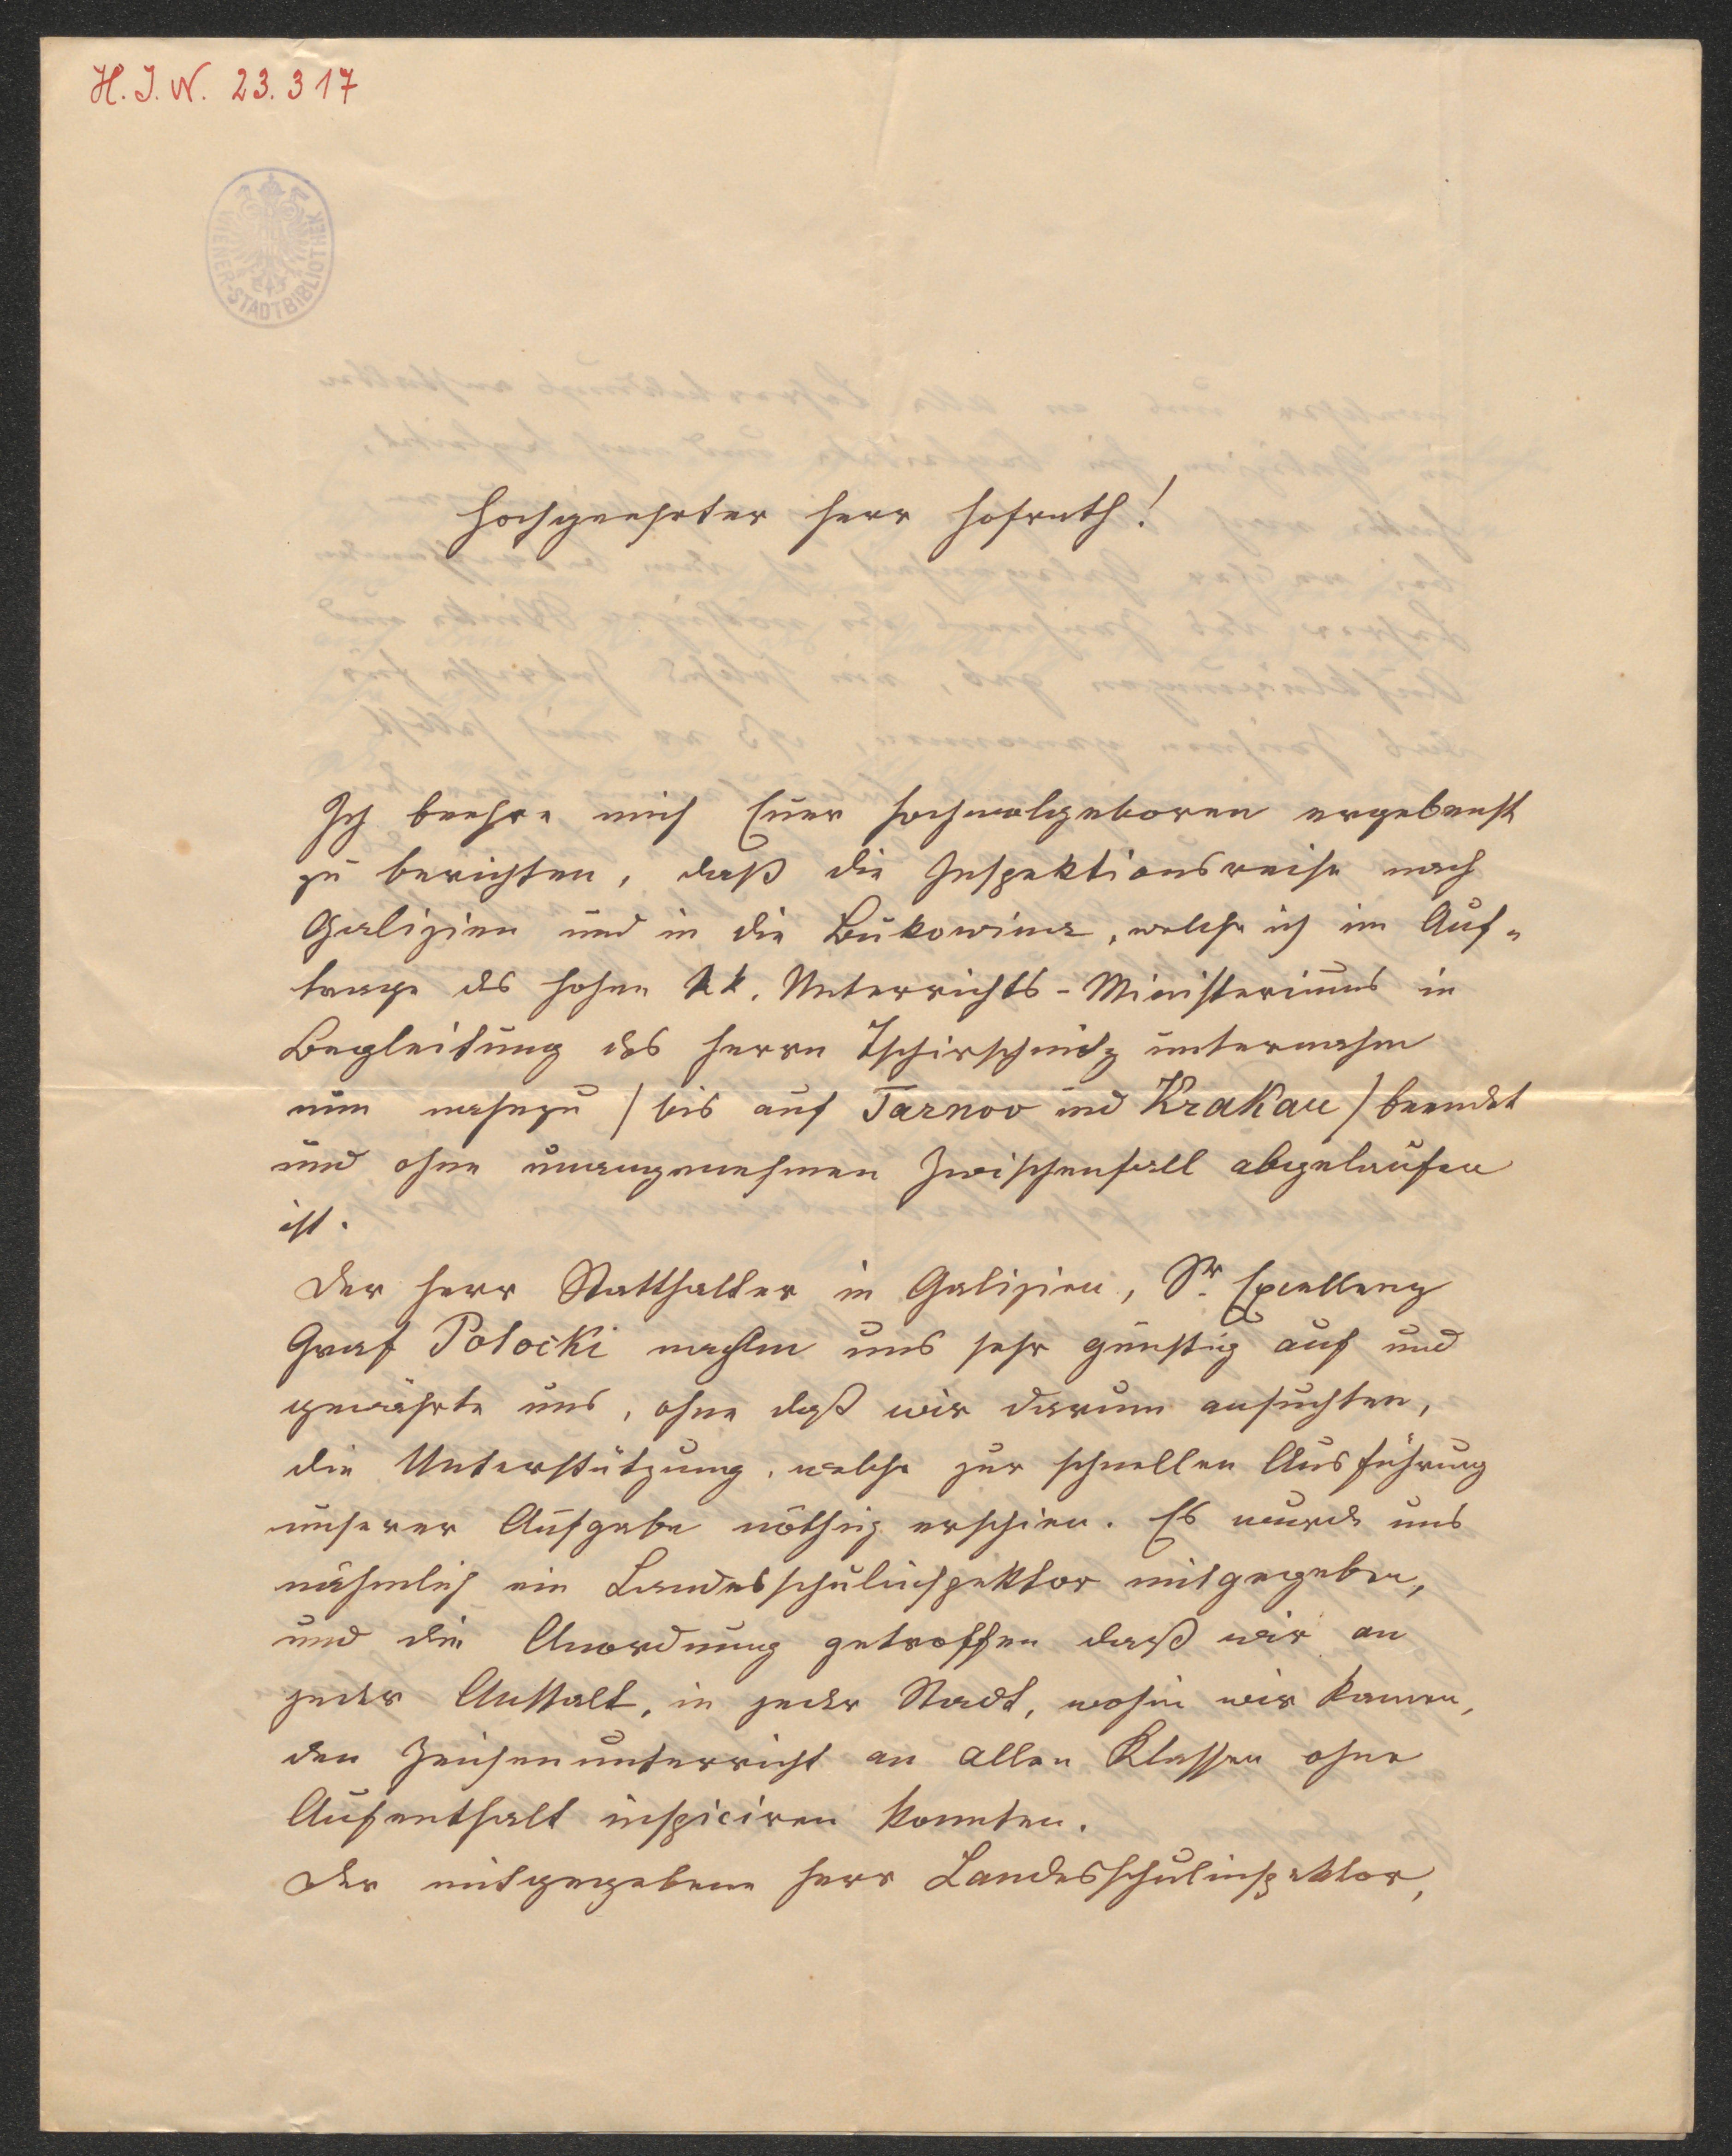 H. I. N. 23.317
WIENER-STADTBIBLIOTHEK
Hochgeehrter Herr Hofrath!
Ich beehre mich Euer Hochwolgeboren ergebenst
zu berichten, daß die Inspektionsreise nach
Galizien und in die Bukowina, welche ich im Auf-
trage des hohen kk. Unterrichts-Ministeriums in
Begleitung des Herrn Tschirschnitz unternahm
nun nahezu /bis auf Tarnov und Krakau/ beendet
und ohne unangenehmen Zwischenfall abgelaufen
ist.
Der Herr Statthalter in Galizien, Sr. Excellenz
Graf Potocki nahm uns sehr günstig auf und
gewährte uns, ohne daß wir darum ansuchten,
die Unterstützung, welche zur schnellen Ausführung
unserer Aufgabe nöthig erschien. Es wurde uns
nähmlich ein Landesschulinspektor mitgegeben,
und die Anordnung getroffen daß wir an
jeder Anstalt, in jeder Stadt, wohin wir kamen,
den Zeichenunterricht an allen Klassen ohne
Aufenthalt inspiciren konnten.
Der mitgegebene Herr Landesschulinspektor,